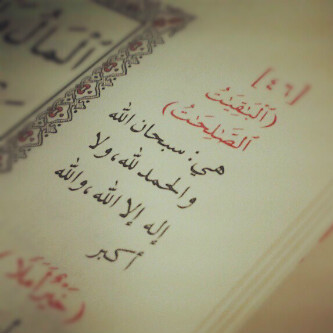 ٱلْمَالُ وَ
[٤٦]
(ٱلْبَٰقِيَٰتُ
ٱلصَّٰلِحَٰتُ)
هي: سبحان الله
والحمد لله، ولا
إله إلا الله، والله
أكبر
(خَيْرٌ أَمَلًا)